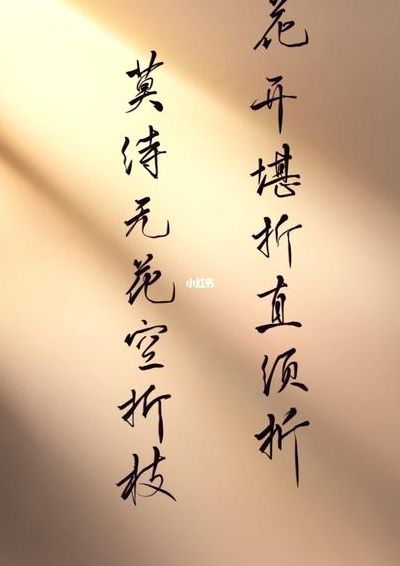 花开堪折直须折
莫待无花空折枝
小红书